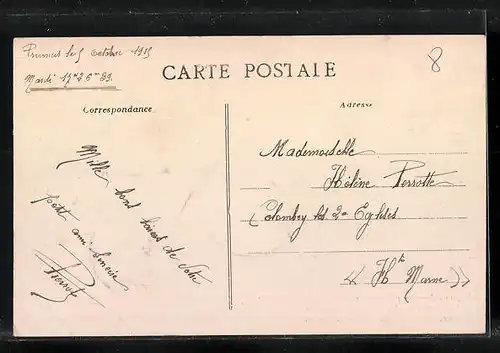 le 5 octobre 1915
8
Mardi 17h 26m 89.
CARTE POSTALE
Correspondance
Adresse
Mille bons baisers de votre
petit ami sincère
Pierrot
Mademoiselle
Hélène Perrotte
Colombey les 2 Eglises
« Hte Marne »